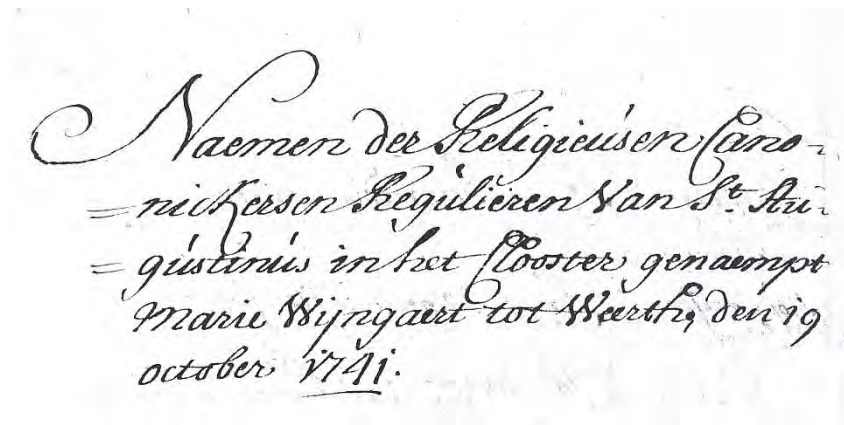 Naemen der Religieúsen Cano-
=nickersen Regúlieren Van St. Aú-
=gústinús in het Clooster genaempt
Marie Wijngaert tot Weerth, den 19
october 1741.